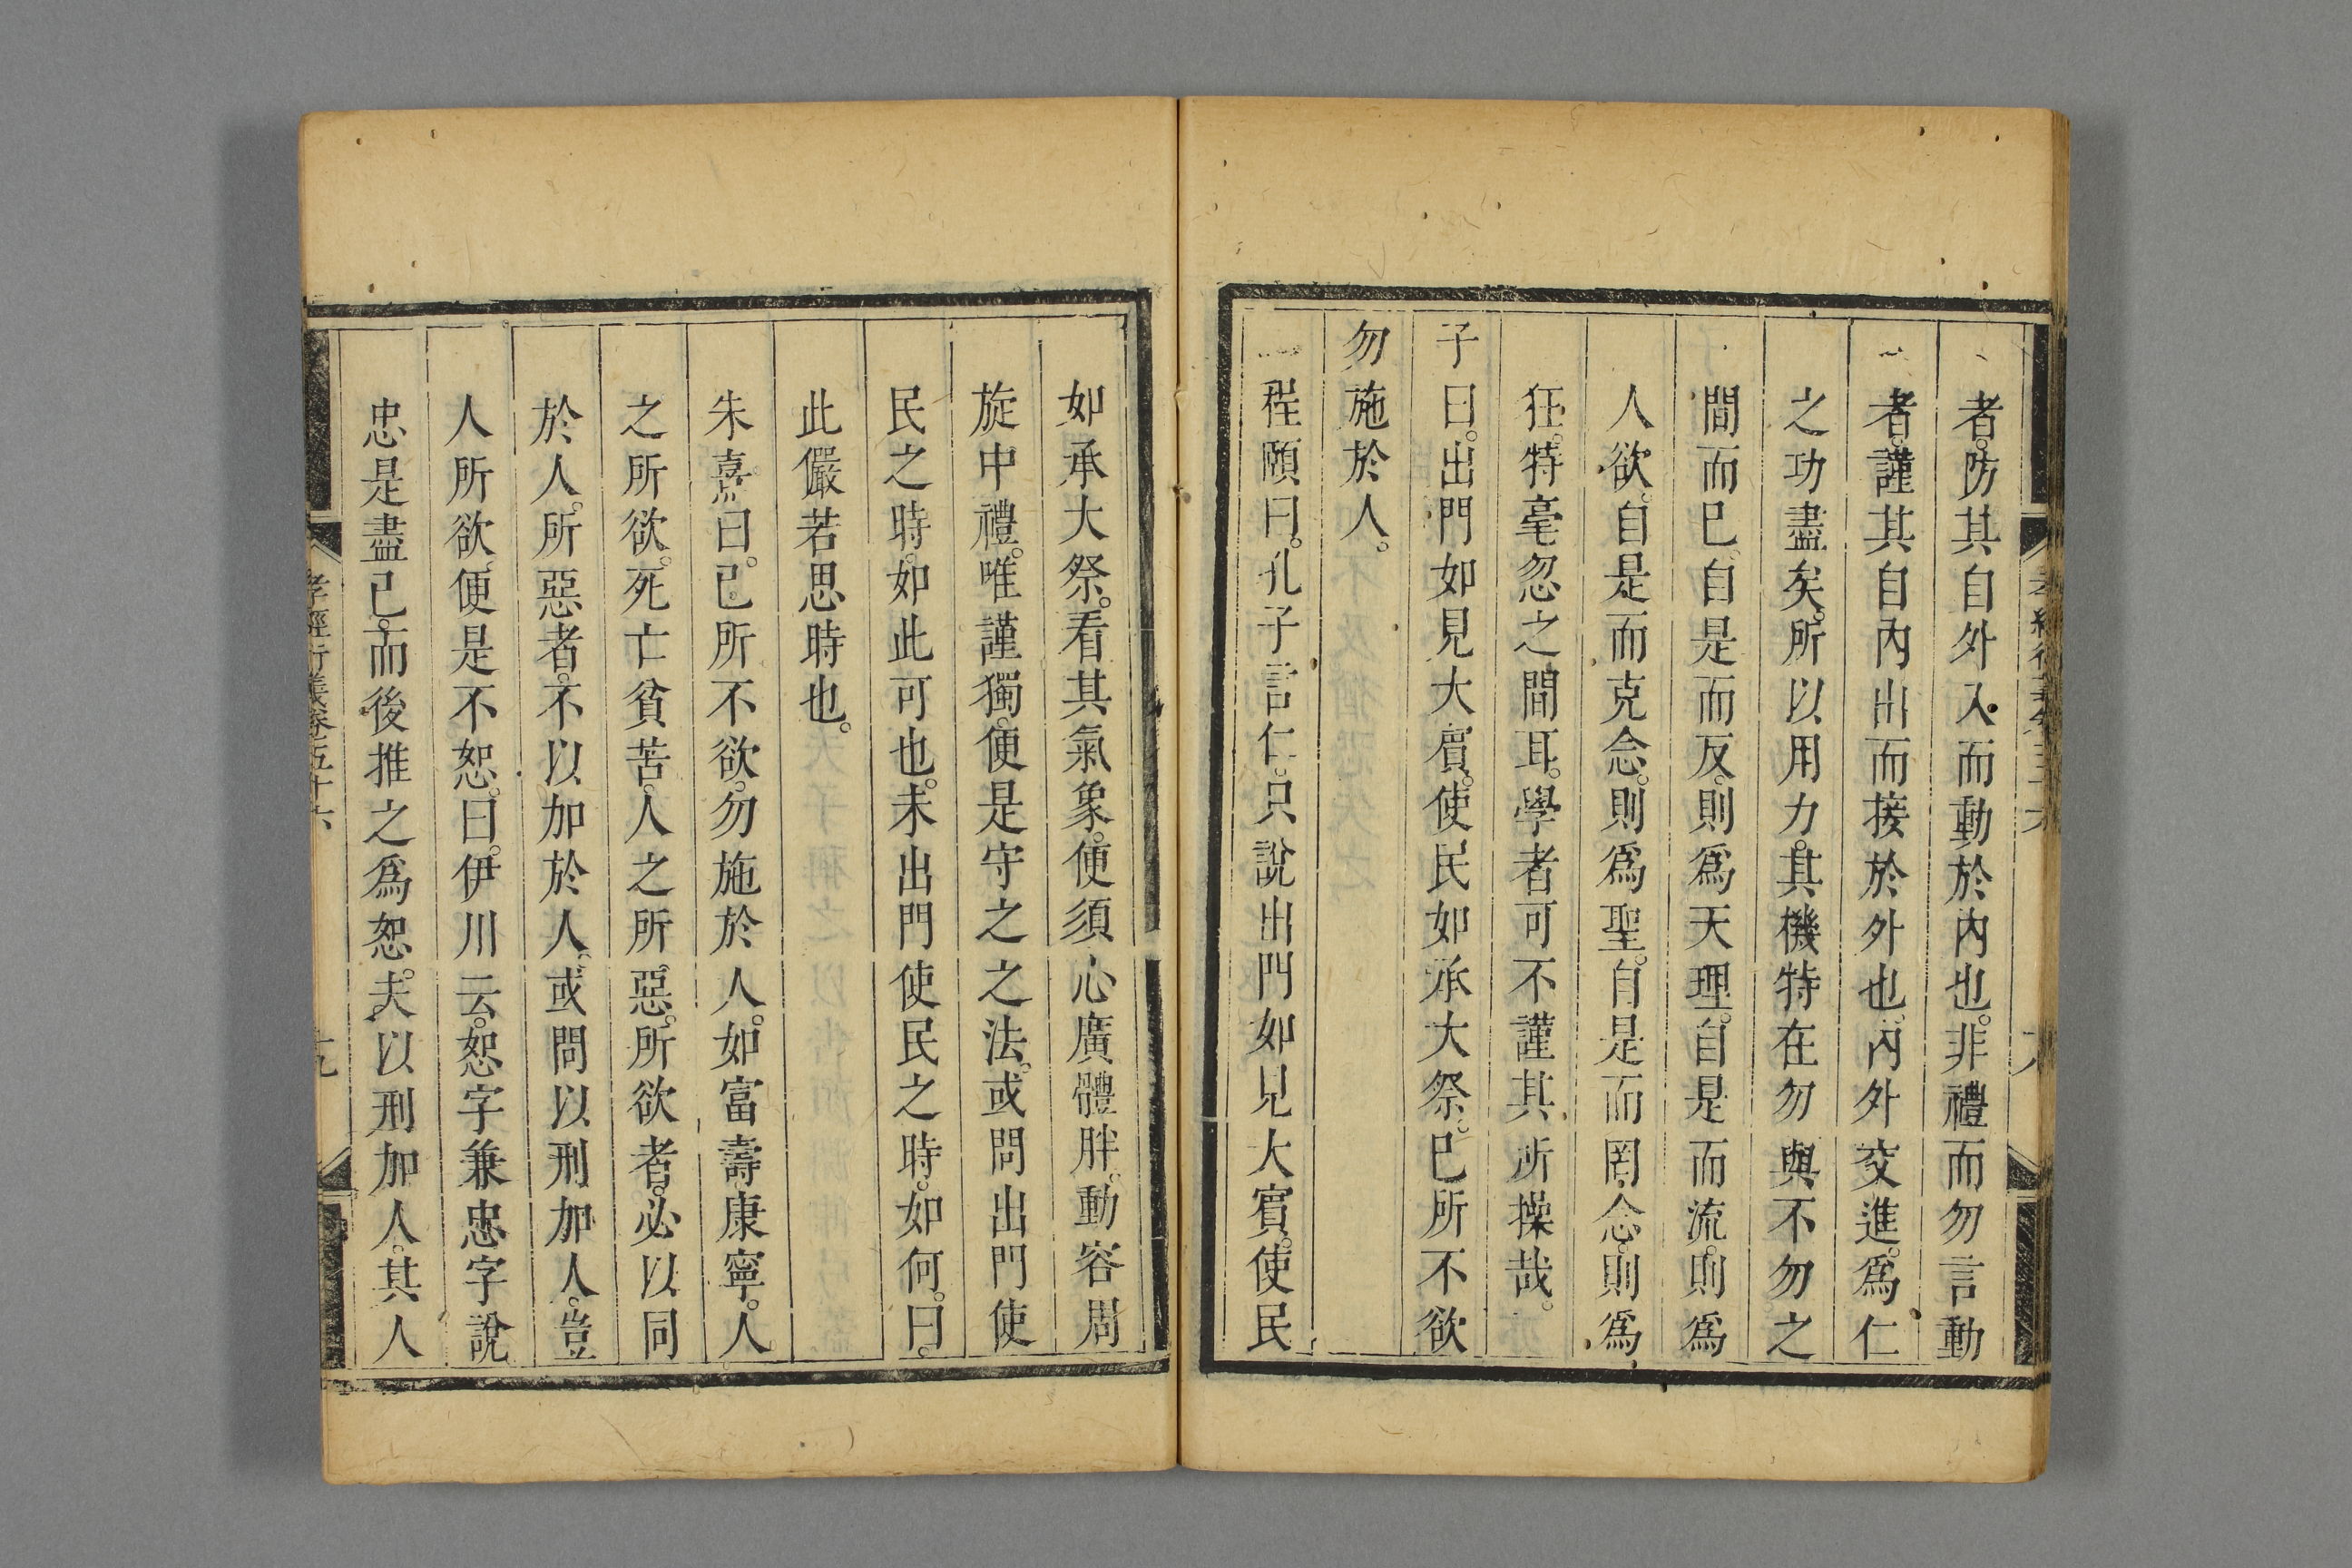 者。防其自外入而動於內也。非禮而勿言動
者。謹其自內出而接於外也。內外交進。爲仁
之功盡矣。所以用力。其機特在勿與不勿之
間而已。自是而反。則爲天理。自是而流。則爲
人欲。自是而克念。則爲聖。自是而罔念。則爲
狂。特毫忽之間耳。學者可不謹其所操哉。
子曰。出門如見大賓。使民如承大祭。已所不欲
勿施於人。
程頤曰。孔子言仁。只說出門如見大賓。使民
如承大祭。看其氣象。便須心廣體胖。動容周
旋中禮。唯謹獨。便是守之之法。或問出門使
民之時。如此可也。未出門使民之時。如何。曰。
此儼若思時也。
朱熹曰。已所不欲。勿施於人。如富壽康寧。人
之所欲。死亡貧苦。人之所惡。所欲者。必以同
於人。所惡者。不以加於人。或問以刑加人。豈
人所欲。便是不恕。曰。伊川云。恕字兼忠字說
忠是盡已。而後推之爲恕。夫以刑加人。其人
孝經衍義卷五十六